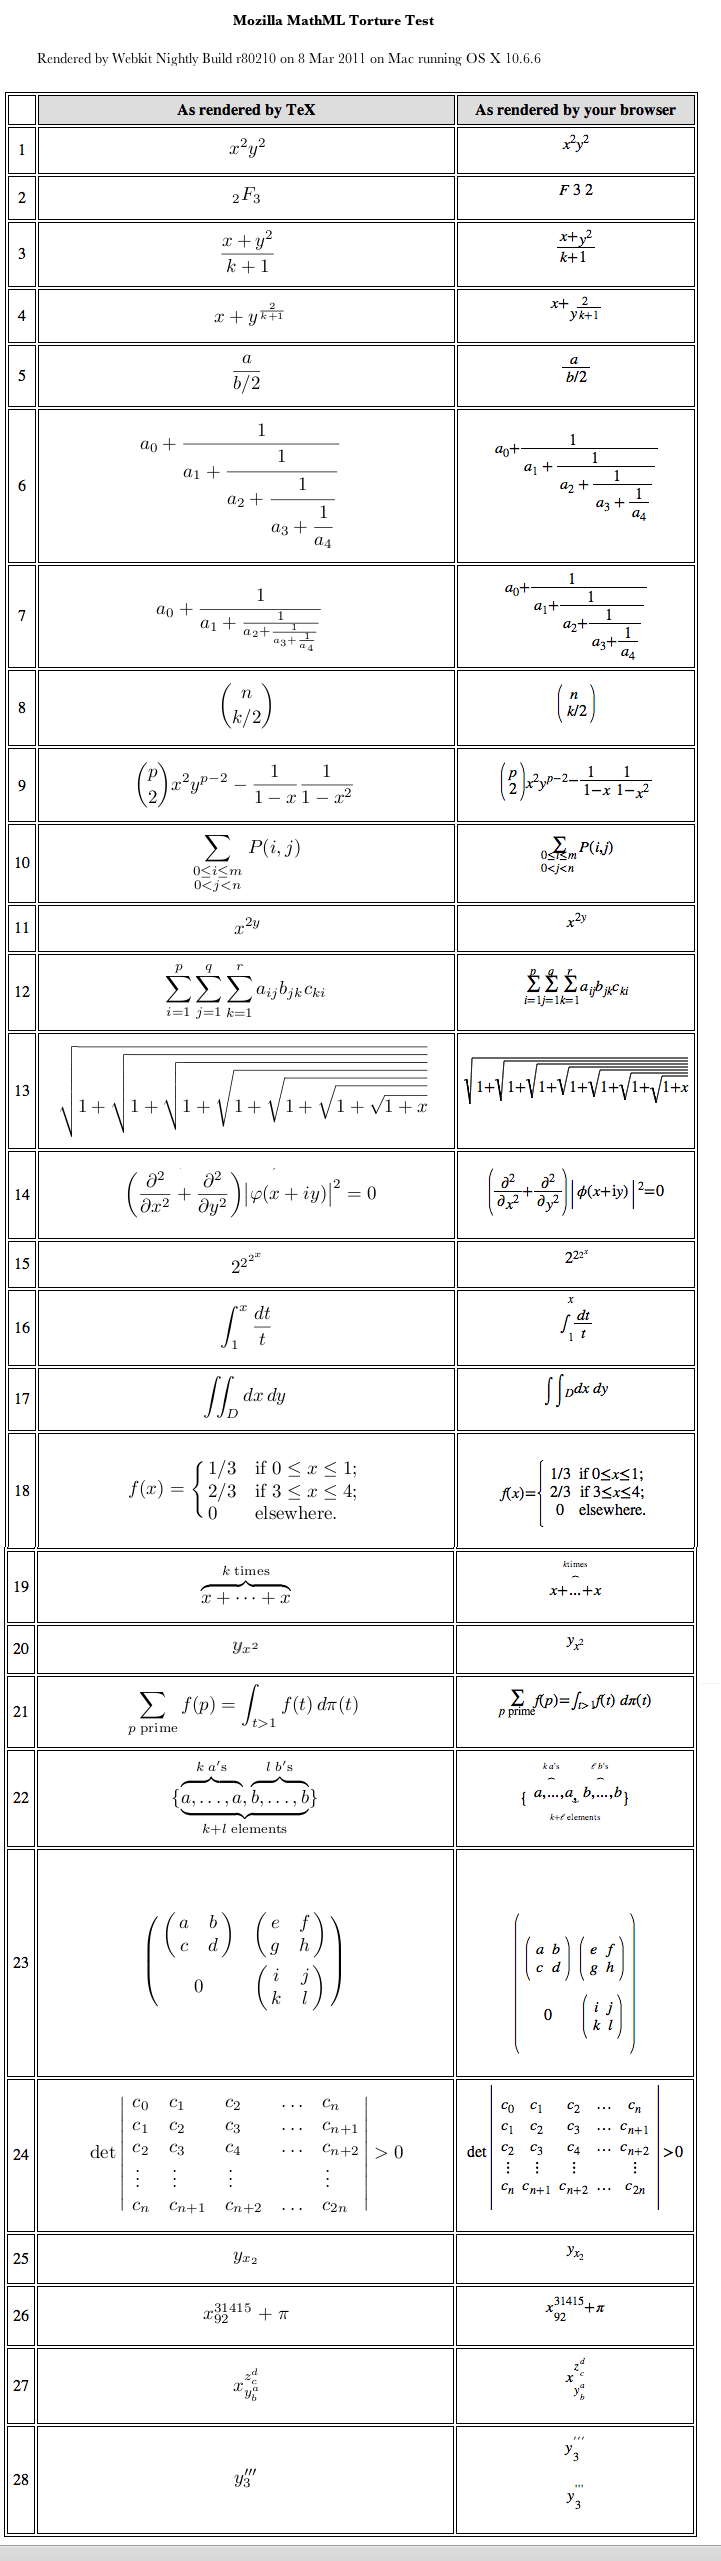 Mozilla MathML Torture Test
Rendered by Webkit Nightly Build r80210 on 8 Mar 2011 on Mac running OS X 10.6.6
As rendered by TeX | As rendered by your browser
1 | x²y² | x²y²
2 | ₂F₃ | F 3 2
3 | (x + y²)/(k + 1) | (x+y²)/(k+1)
4 | x + y^(2/(k+1)) | x+ 2/(y k+1)
5 | a/(b/2) | a/(b/2)
6 | a₀ + 1/(a₁ + 1/(a₂ + 1/(a₃ + 1/a₄))) | a₀+1/(a₁ + 1/(a₂ + 1/(a₃ + 1/a₄)))
7 | a₀ + 1/(a₁ + 1/(a₂+1/(a₃+1/a₄))) | a₀+1/(a₁+1/(a₂+1/(a₃+1/a₄)))
8 | (n k/2) | (n k/2)
9 | (p 2) x²y^(p−2) − 1/(1 − x) 1/(1 − x²) | (p 2) x²y^(p−2)− 1/(1−x) 1/(1−x²)
10 | ∑ 0≤i≤m 0<j<n P(i, j) | ∑ 0≤i≤m 0<j<n P(i,j)
11 | x^(2y) | x^(2y)
12 | ∑_(i=1)^p ∑_(j=1)^q ∑_(k=1)^r a_(ij) b_(jk) c_(ki) | ∑_(i=1)^p ∑_(j=1)^q ∑_(k=1)^r a_(ij) b_(jk) c_(ki)
13 | √(1 + √(1 + √(1 + √(1 + √(1 + √(1 + √(1 + x))))))) | √(1+√(1+√(1+√(1+√(1+√(1+√(1+x)))))))
14 | (∂²/∂x² + ∂²/∂y²) |φ(x + iy)|² = 0 | (∂²/∂x² + ∂²/∂y²) |ϕ(x+iy)|²=0
15 | 2^(2^(2^x)) | 2^(2^(2^x))
16 | ∫_1^x dt/t | ∫_1^x dt/t
17 | ∬_D dx dy | ∫∫_D dx dy
18 | f(x) = { 1/3 if 0 ≤ x ≤ 1; 2/3 if 3 ≤ x ≤ 4; 0 elsewhere. | f(x)={ 1/3 if 0≤x≤1; 2/3 if 3≤x≤4; 0 elsewhere.
19 | k times x + ··· + x | ktimes x+...+x
20 | y_(x²) | y_(x²)
21 | ∑_(p prime) f(p) = ∫_(t>1) f(t) dπ(t) | ∑_(p prime) f(p)=∫_(t>1) f(t) dπ(t)
22 | k a′s l b′s {a, . . . , a, b, . . . , b} k+l elements | k a's ℓ b's { a,...,a, b,...,b} k+ℓ elements
23 | ((a b c d) (e f g h) 0 (i j k l)) | ((a b c d) (e f g h) 0 (i j k l))
24 | det | c₀ c₁ c₂ … cₙ c₁ c₂ c₃ … cₙ₊₁ c₂ c₃ c₄ … cₙ₊₂ ⋮ ⋮ ⋮ ⋮ cₙ cₙ₊₁ cₙ₊₂ … c₂ₙ | > 0 | det | c₀ c₁ c₂ … cₙ c₁ c₂ c₃ … cₙ₊₁ c₂ c₃ c₄ … cₙ₊₂ ⋮ ⋮ ⋮ ⋮ cₙ cₙ₊₁ cₙ₊₂ … c₂ₙ | >0
25 | y_(x₂) | y_(x₂)
26 | x_92^31415 + π | x_92^31415+π
27 | x_(y_b^a)^(z_c^d) | x_(y_b^a)^(z_c^d)
28 | y₃‴ | y₃‴ y₃'''